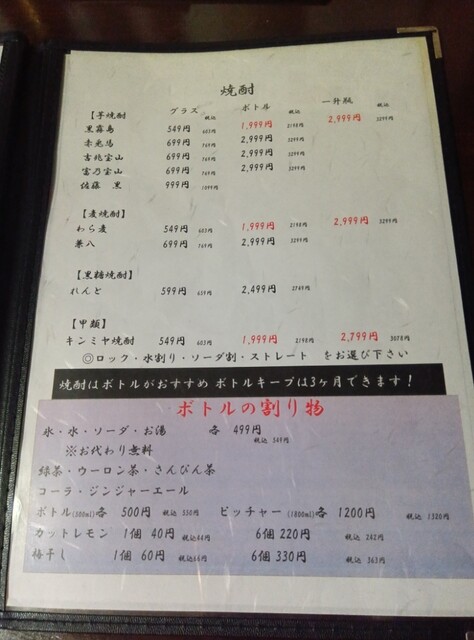 焼酎
グラス 税込 ボトル 税込 一升瓶 税込
【芋焼酎】
黒霧島 549円 603円 1,999円 2198円 2,999円 3299円
赤兎馬 699円 769円 2,999円 3299円
吉兆宝山 699円 769円 2,999円 3299円
富乃宝山 699円 769円 2,999円 3299円
佐藤 黒 999円 1099円
【麦焼酎】
わら麦 549円 603円 1,999円 2198円 2,999円 3299円
兼八 699円 769円 2,999円 3299円
【黒糖焼酎】
れんと 599円 659円 2,499円 2749円
【甲類】
キンミヤ焼酎 549円 603円 1,999円 2198円 2,799円 3078円
◎ロック・水割り・ソーダ割・ストレート をお選び下さい
焼酎はボトルがおすすめ ボトルキープは3ヶ月できます!
ボトルの割り物
氷・水・ソーダ・お湯 各 499円
税込 549円
※お代わり無料
緑茶・ウーロン茶・さんぴん茶
コーラ・ジンジャーエール
ボトル(500ml)各 500円 税込 550円 ピッチャー(1800ml)各 1200円 税込 1320円
カットレモン 1個 40円 税込44円 6個 220円 税込 242円
梅干し 1個 60円 税込66円 6個 330円 税込 363円